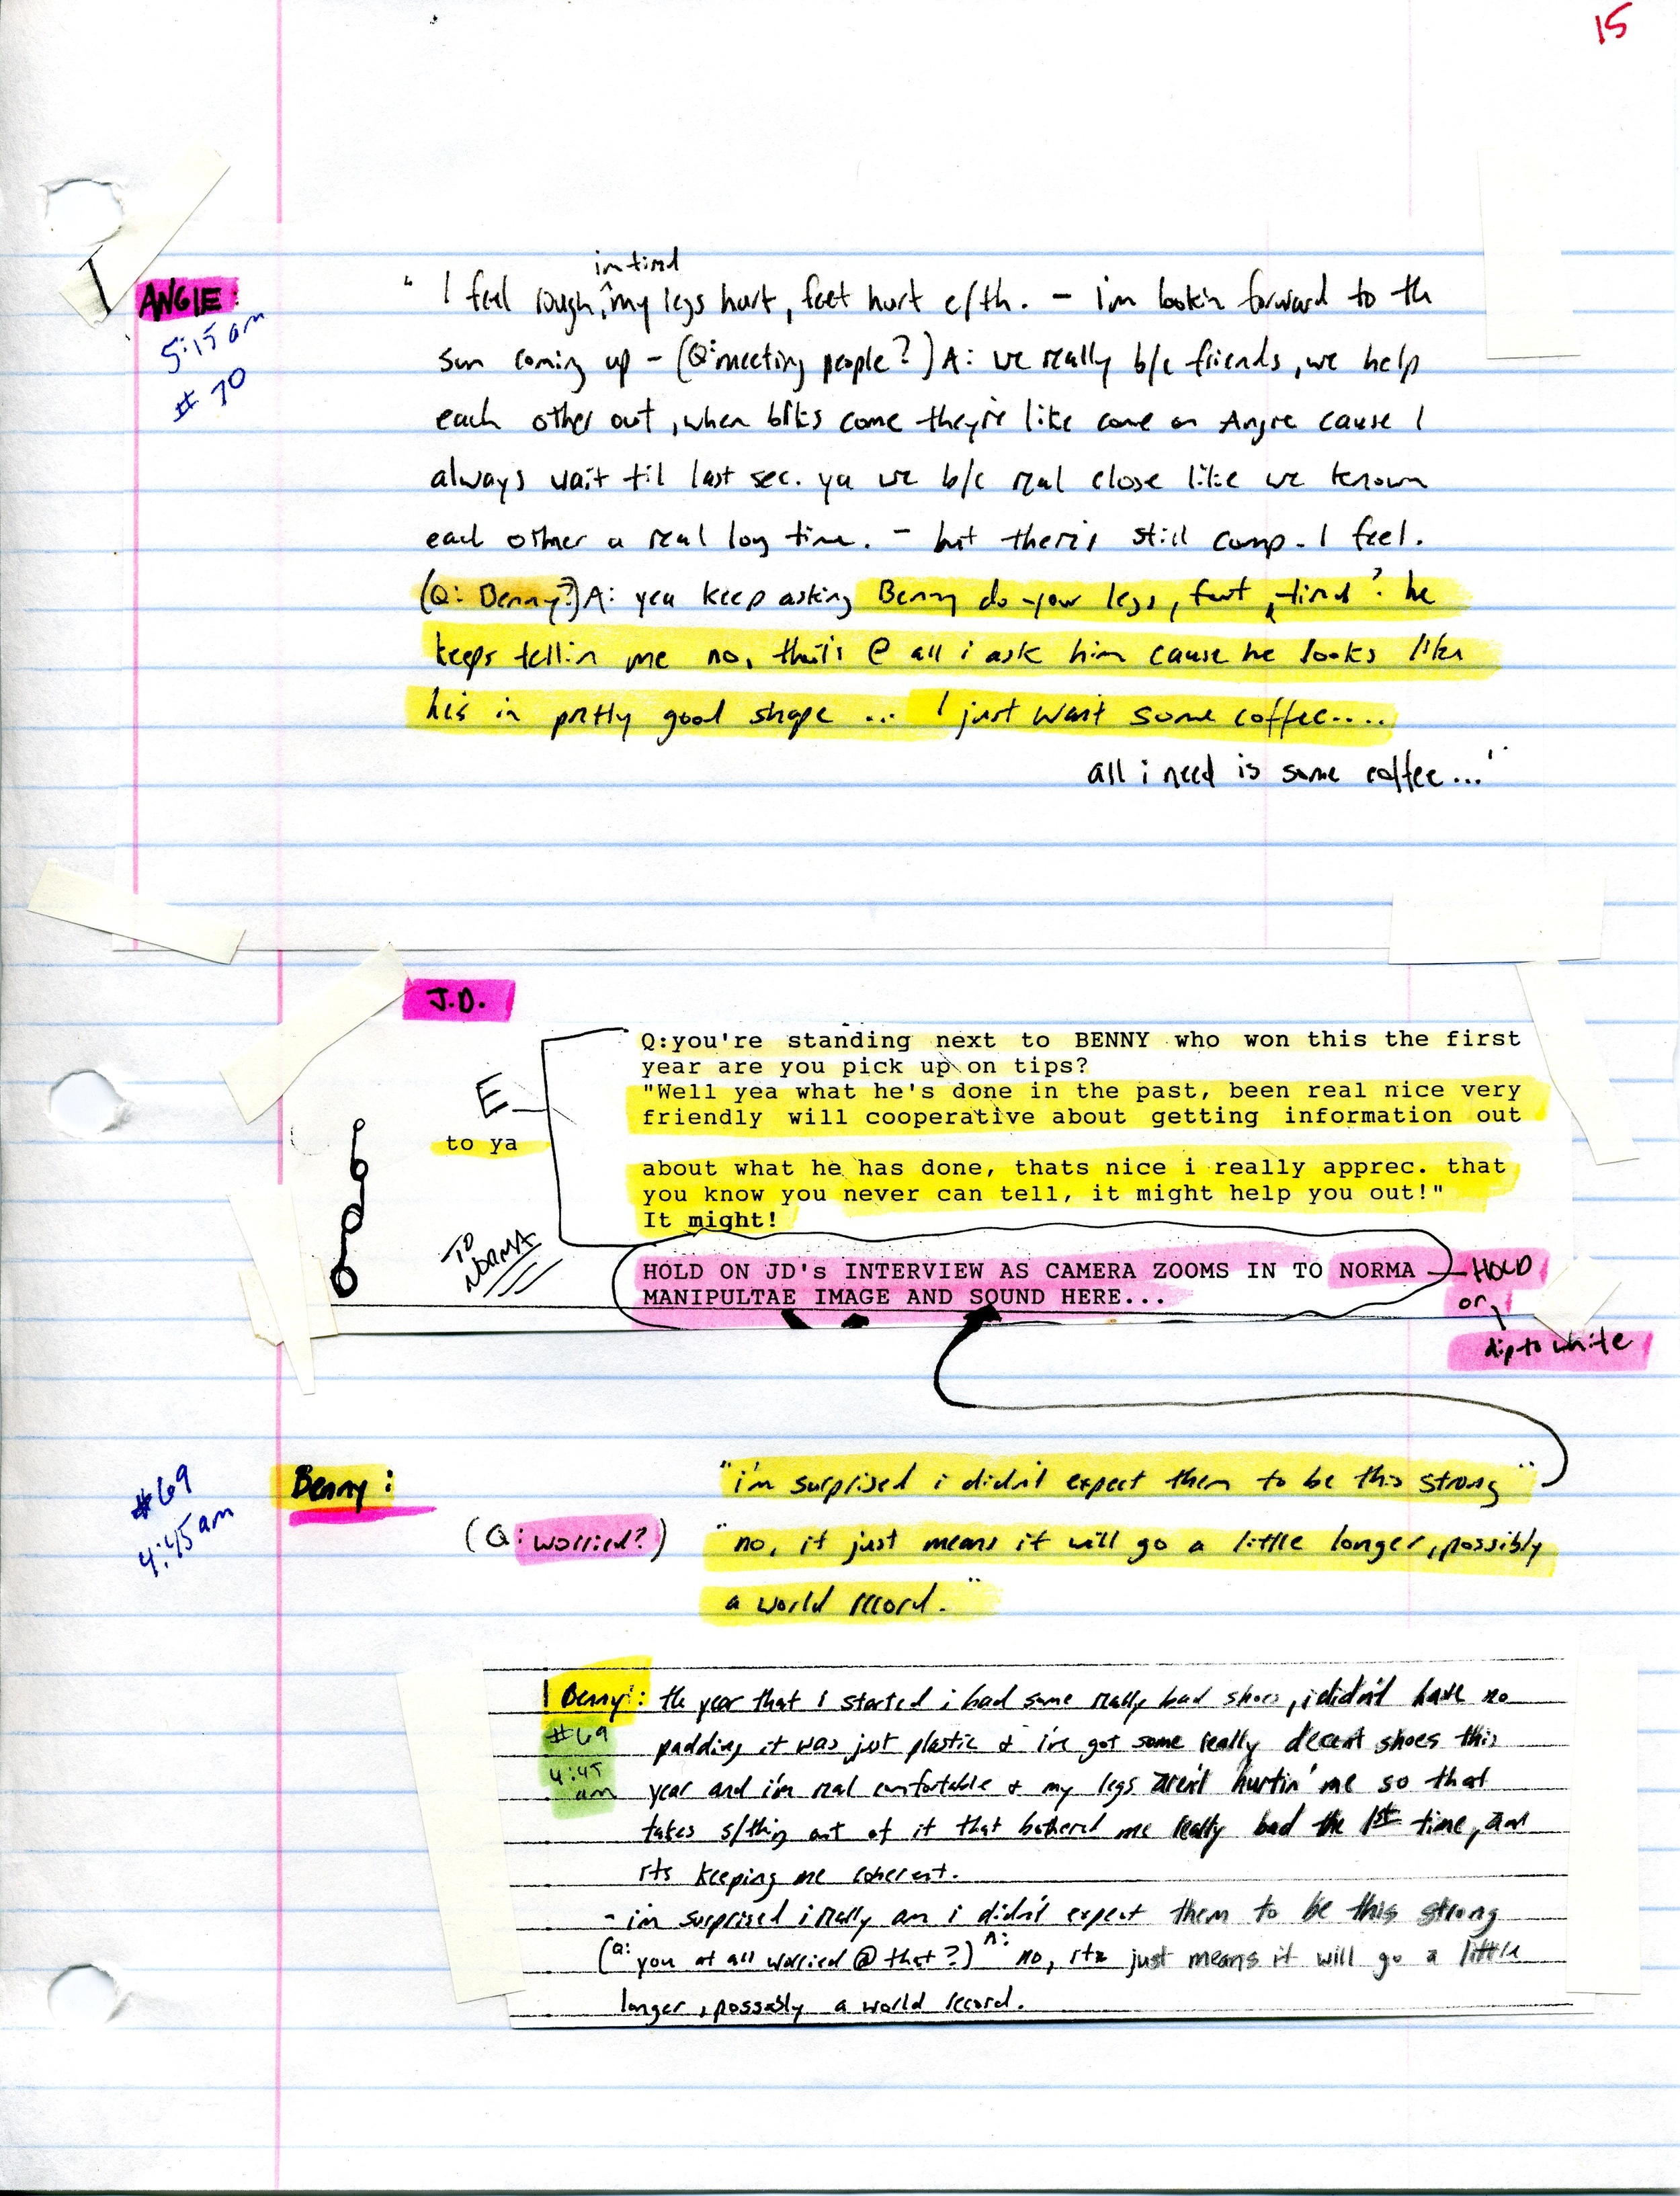 15
im tired
ANGIE:
" I feel rough, my legs hurt, feet hurt e/th. - i'm lookin forward to th
5:15 am
sun coming up - (Q: meeting people?) A: we really b/c friends, we help
# 70
each other out, when brks come they're like come on Angie cause I
always wait til last sec. ya we b/c real close like we known
each other a real long time. - but there's still comp. I feel.
(Q: Benny?) A: yea keep asking Benny do your legs, feet, tired? he
keeps tellin me no, that's @ all i ask him cause he looks like
his in pretty good shape ... I just want some coffee....
all i need is some coffee..."
J.D.
Q:you're standing next to BENNY who won this the first
year are you pick up on tips?
"Well yea what he's done in the past, been real nice very
E
friendly will cooperative about getting information out
to ya
about what he has done, thats nice i really apprec. that
you know you never can tell, it might help you out!"
It might!
TO NORMA
HOLD ON JD's INTERVIEW AS CAMERA ZOOMS IN TO NORMA — HOLD
MANIPULTAE IMAGE AND SOUND HERE...
or
dip to white
#69
4:45 am
Benny:
"i'm surprised i didn't expect them to be this strong"
(Q: worried?) "no, it just means it will go a little longer, possibly
a world record."
Benny: the year that I started i had some really bad shoes, i didn't have no
#69
padding it was just plastic & i've got some really decent shoes this
4:45 am
year and i'm real comfortable & my legs aren't hurtin' me so that
takes s/thing out of it that bothered me really bad the 1st time, and
its keeping me coherent.
- im surprised i really am i didn't expect them to be this strong
(Q: you at all worried @ that?) A: no, its just means it will go a little
longer, possably a world record.